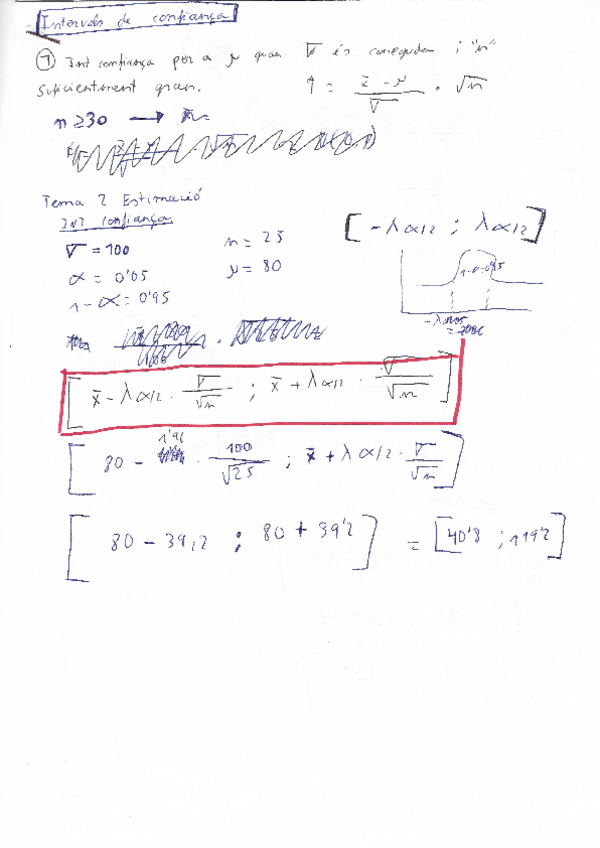 Intervals de confiança
① Int confiança per a μ quan σ és coneguda i "n"
suficientment gran. T = x̄ - μ / σ · √n
n ≥ 30 → x̄ =
Tema 2 Estimació
Int confiança
[-λ α/2 ; λ α/2]
σ = 100 n = 25
α = 0'05 μ = 80
1-α = 0'95
[x̄ - λ α/2 · σ/√n ; x̄ + λ α/2 · σ/√n]
[80 - 1'96 · 100/√25 ; x̄ + λ α/2 · σ/√n]
[80 - 39,2 ; 80 + 39'2] = [40'8 ; 119'2]